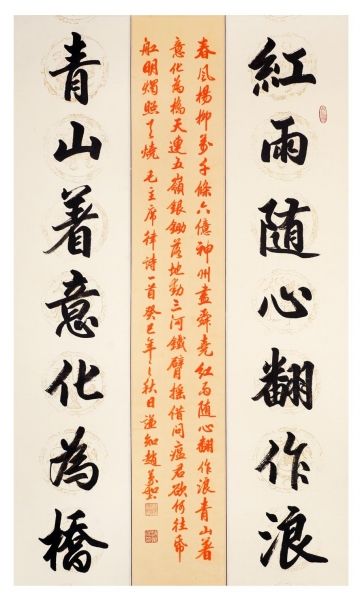 紅雨随心翻作浪
春風楊柳萬千條六億神州盡舜堯紅雨随心翻作浪青山著
意化為橋天連五嶺銀鋤落地動三河鐵臂摇借問瘟君欲何往紙
船明燭照天燒 毛主席律詩一首癸巳年之秋日
青山著意化為橋